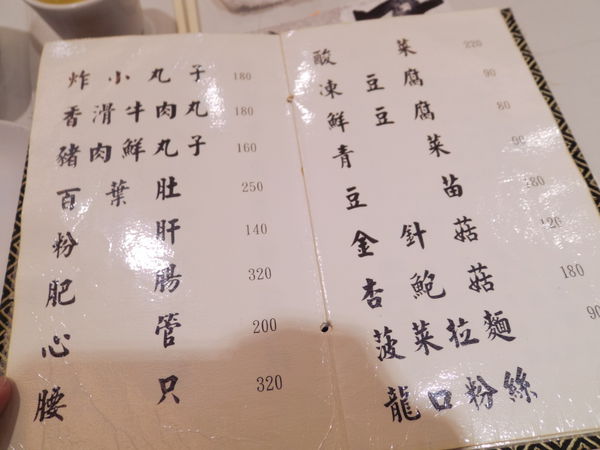 炸小丸子 180
香滑牛肉丸 180
豬肉鮮丸子 160
百葉肚 250
粉肝 140
肥腸 320
心管 200
腰只 320
酸菜 220
凍豆腐 90
鮮豆腐 80
青菜 90
豆苗 180
金針菇 120
杏鮑菇 180
菠菜拉麵 90
龍口粉絲